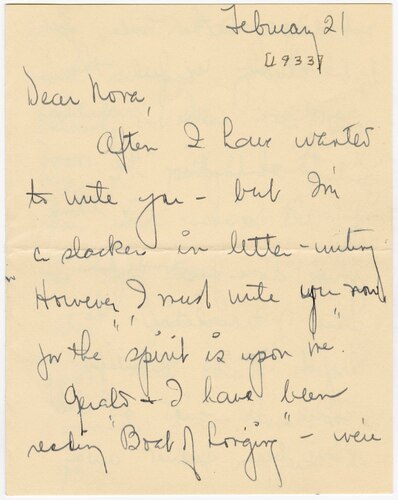 February 21
[1933]
Dear Nora,
Often I have wanted
to write you - but I'm
a slacker in letter-writing.
However, I must write you now
for "the spirit is upon me."
Gerald + I have been
reading "Boat of Longing" - we're